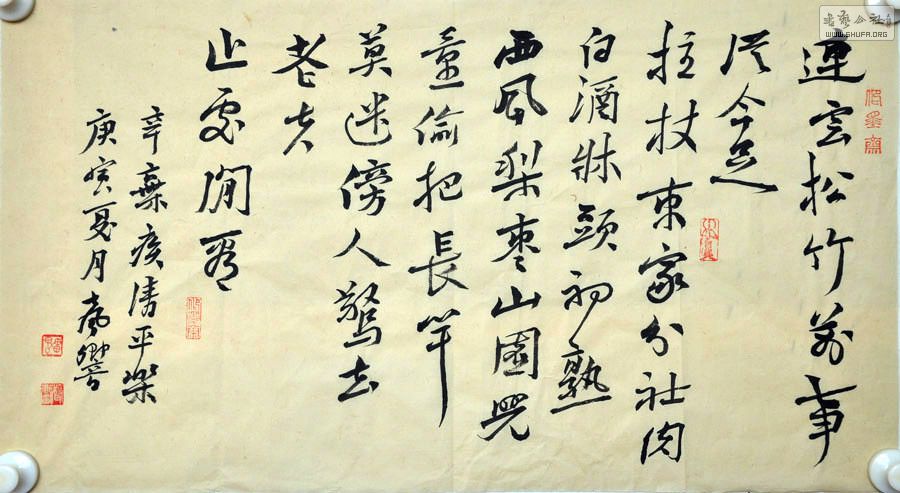 連雲松竹萬事
從今足
拄杖東家分社肉
白酒牀頭初熟
西風梨棗山園兒
童偷把長竿
莫遣傍人驚去
老夫
止處閒看
辛棄疾清平樂
庚寅夏月
書藝公社
WWW.SHUFA.ORG